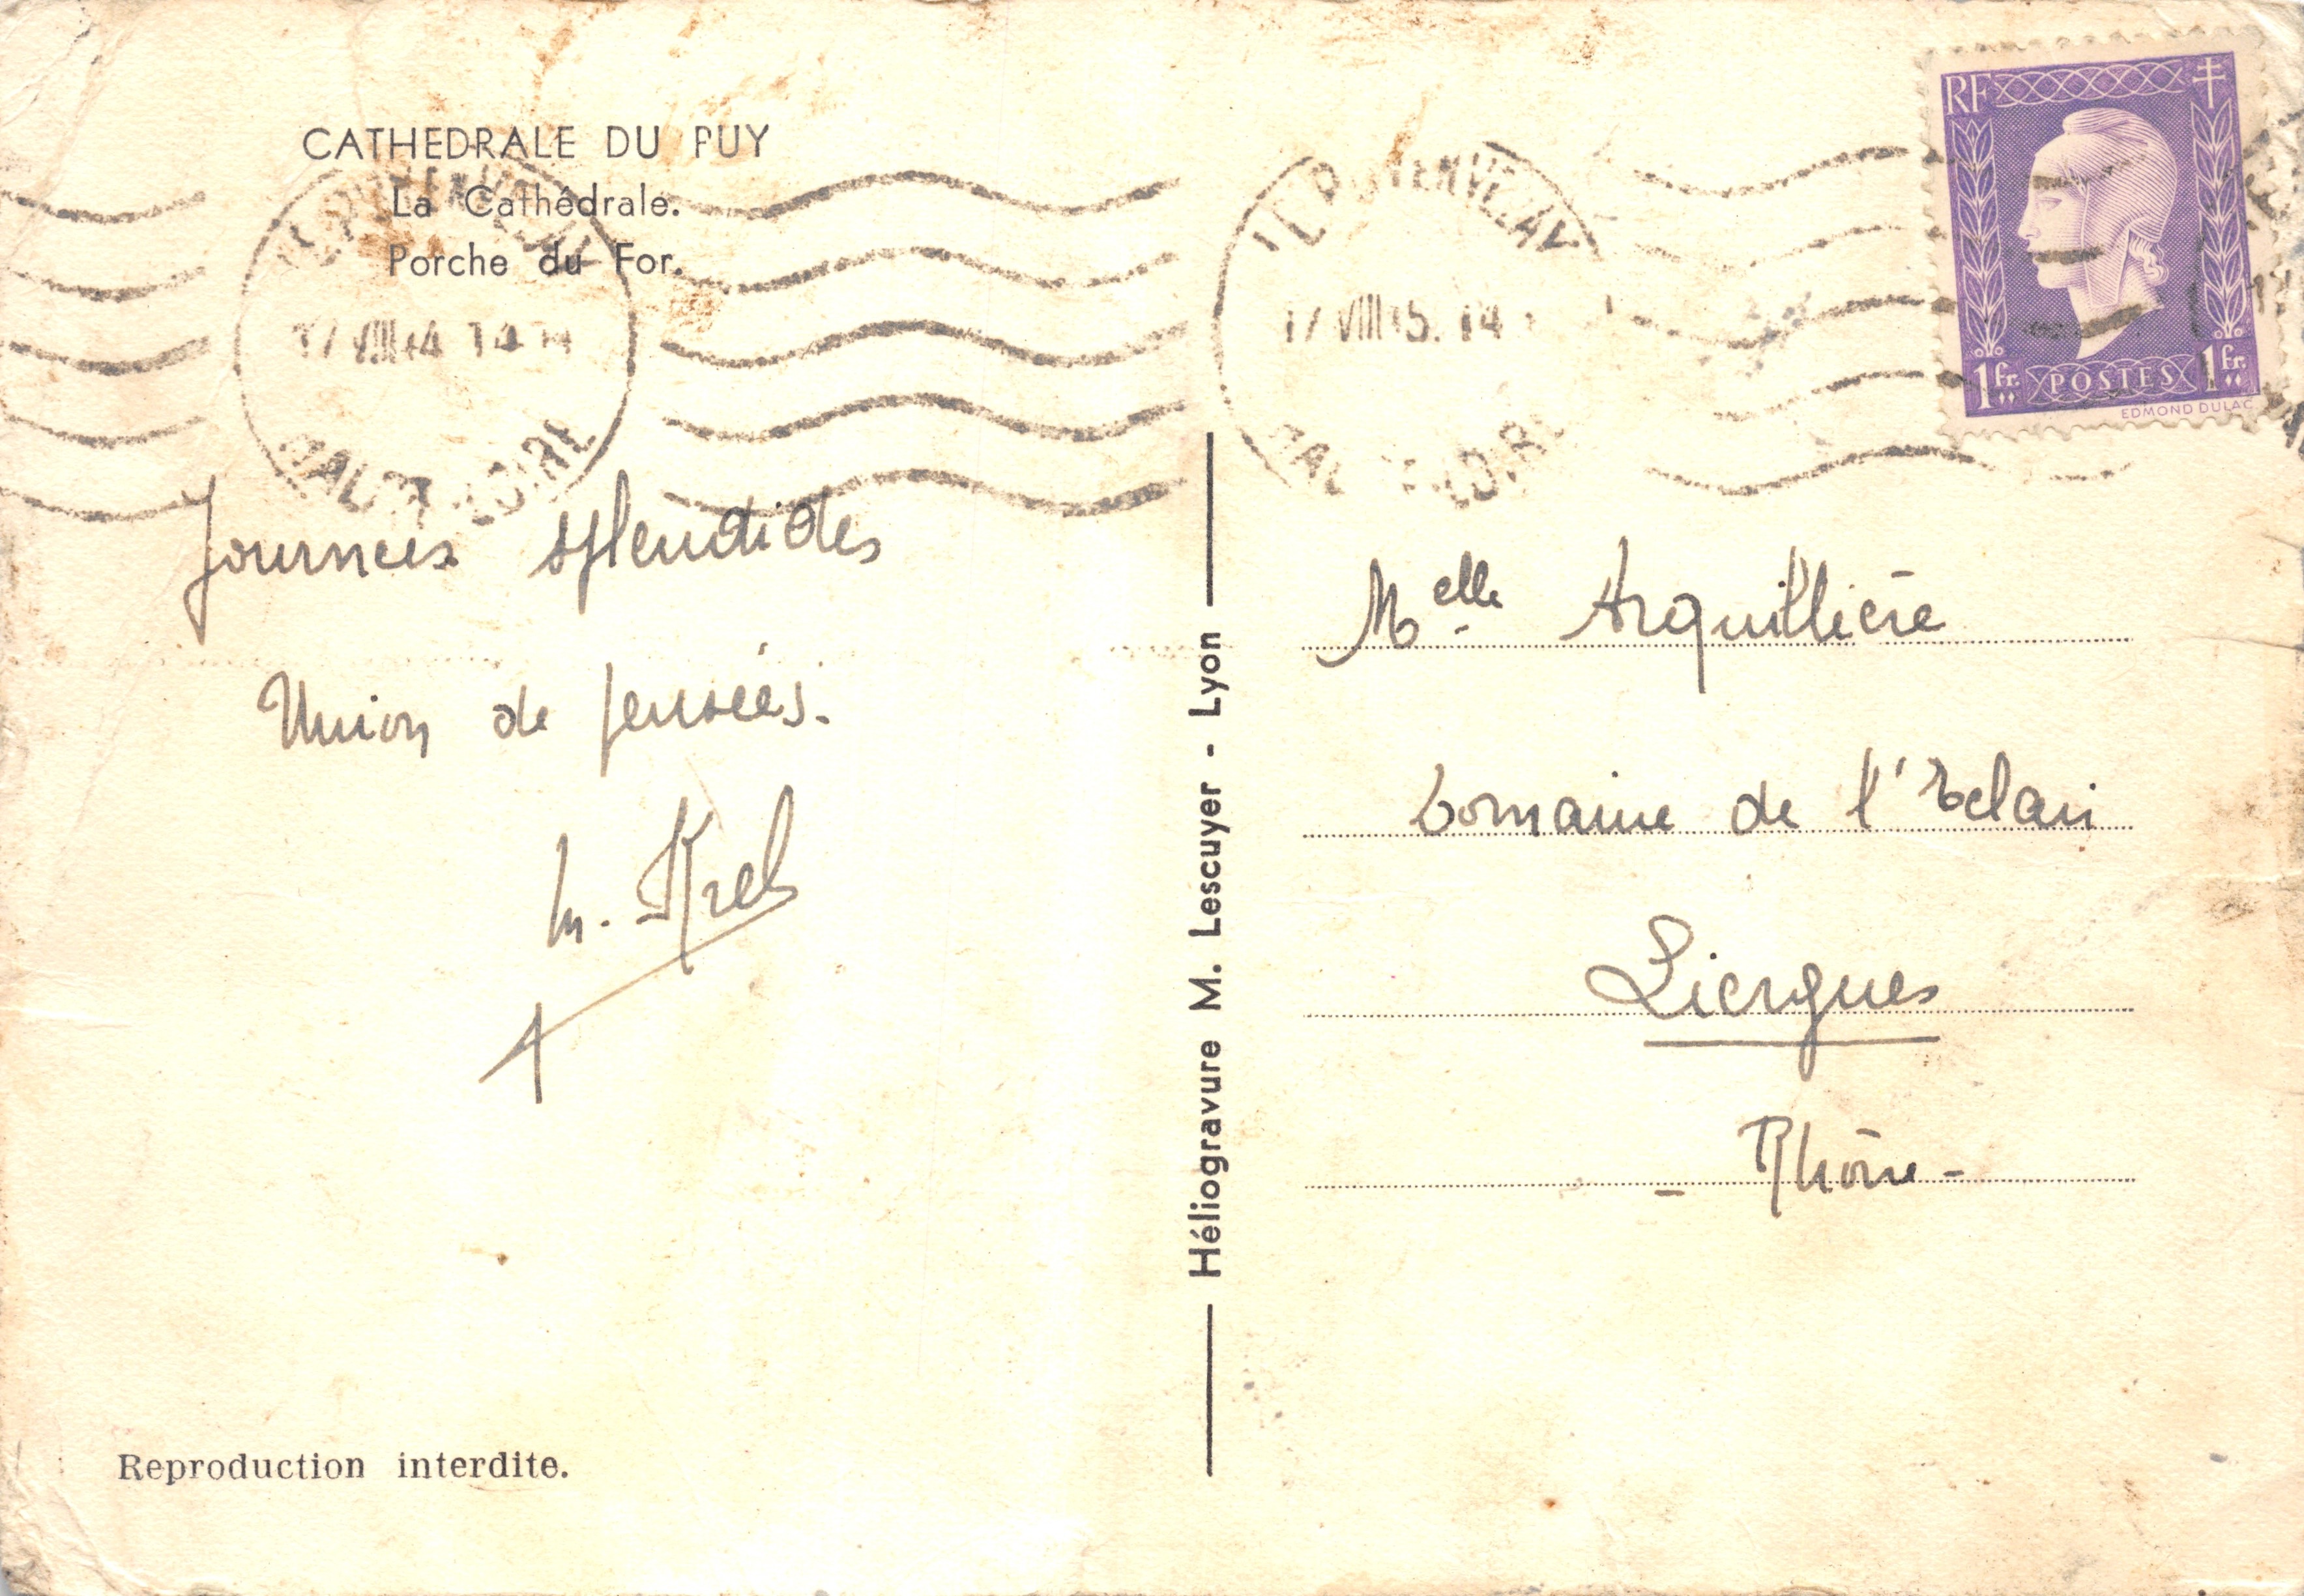 CATHEDRALE DU PUY
La Cathédrale.
Porche du For.
LE PUY EN VELAY
HAUTE LOIRE
LE PUY EN VELAY
17 VIII 45. 14
HAUTE-LOIRE
RF
1fr. POSTES 1fr.
EDMOND DULAC
Journées splendides
Union de pensées.
M. Kreb
Reproduction interdite.
Héliogravure M. Lescuyer - Lyon
Melle Arquillière
Domaine de l'Eclair
Liergues
- Rhône -